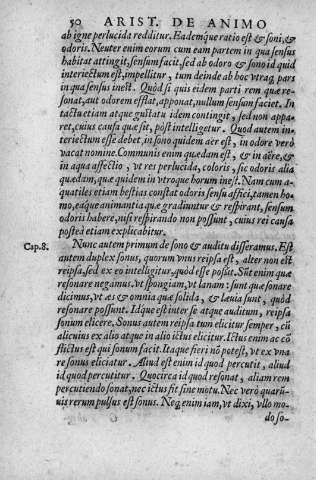 50 ARIST. DE ANIMO
ab igne perlucida redditur. Eademque ratio est & soni, &
odoris. Neuter enim eorum cum eam partem in qua sensus
habitat attingit, sensum facit, sed ab odoro & sono id quid
interiectum est, impellitur, tum deinde ab hoc vtraq; pars
in qua sensus inest. Quòd si quis eidem parti rem quæ re-
sonat, aut odorem efflat, apponat, nullum sensum faciet. In
tactu etiam atque gustatu idem contingit, sed non appa-
ret, cuius causa quæ sit, póst intelligetur. Quod autem in-
teriectum esse debet, in sono quidem aër est, in odore verò
vacat nomine. Communis enim quædam est, & in aëre, &
in aqua affectio, vt res perlucida, coloris, sic odoris alia
quædam, quæ quidem in vtroque horum inest. Nam cum a-
quatiles etiam bestias constat odoris sensu affici, tamen ho-
mo, eæque animantia quæ gradiuntur & respirant, sensum
odoris habere, nisi respirando non possunt, cuius rei causa
posteà etiam explicabitur.
Cap. 8. Nunc autem primum de sono & auditu disseramus. Est
autem duplex sonus, quorum vnus reipsa est, alter non est
reipsa, sed ex eo intelligitur, quòd esse possit. Sūt enim quæ
resonare negamus, vt spongiam, vt lanam: sunt quæ sonare
dicimus, vt æs & omnia quæ solida, & læuia sunt, quòd
resonare possunt. Idque est inter se atque auditum, reipsa
sonum elicere. Sonus autem reipsa tum elicitur semper, cū
alicuius ex alio atque in alio ictus elicitur. Ictus enim ac cō
flictus est qui sonum facit. Itaque fieri nō potest, vt ex vna
re sonus eliciatur. Aliud est enim id quod percutit, aliud
id quod percutitur. Quocirca id quod resonat, aliam rem
percutiendo sonat, nec ictus fit sine motu. Nec verò quarū-
uis rerum pulsus est sonus. Neq; enim iam, vt dixi, vllo mo-
do so-